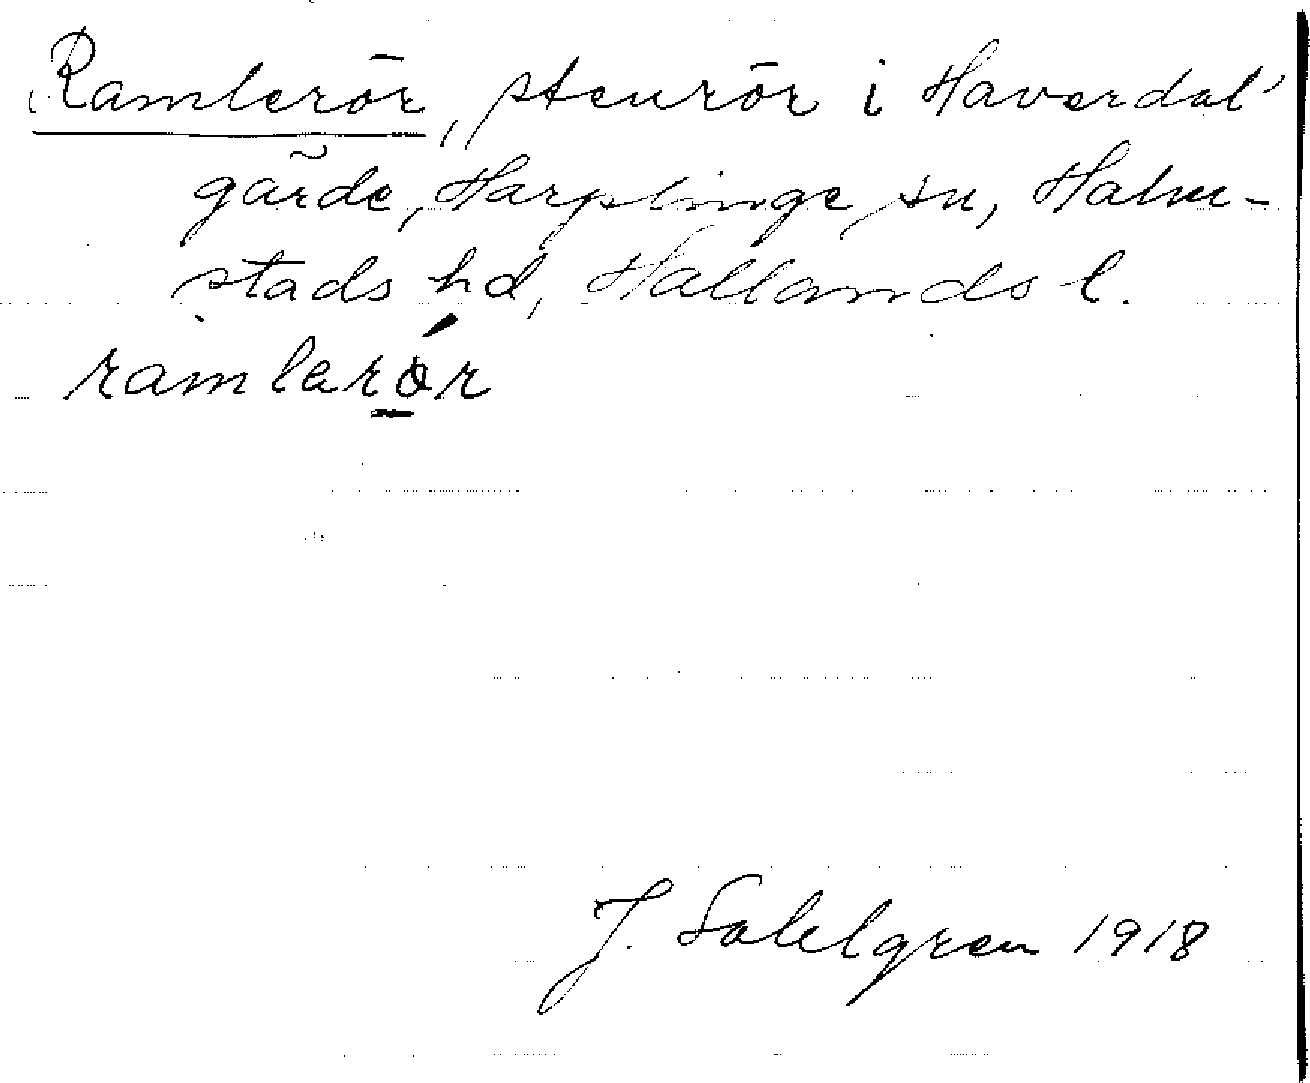 Ramlerör, stenrör i Haverdal'
gärde, Harplinge sn, Halm-
stads hd, Hallands l.
ramlarö́r
J. Sahlgren 1918